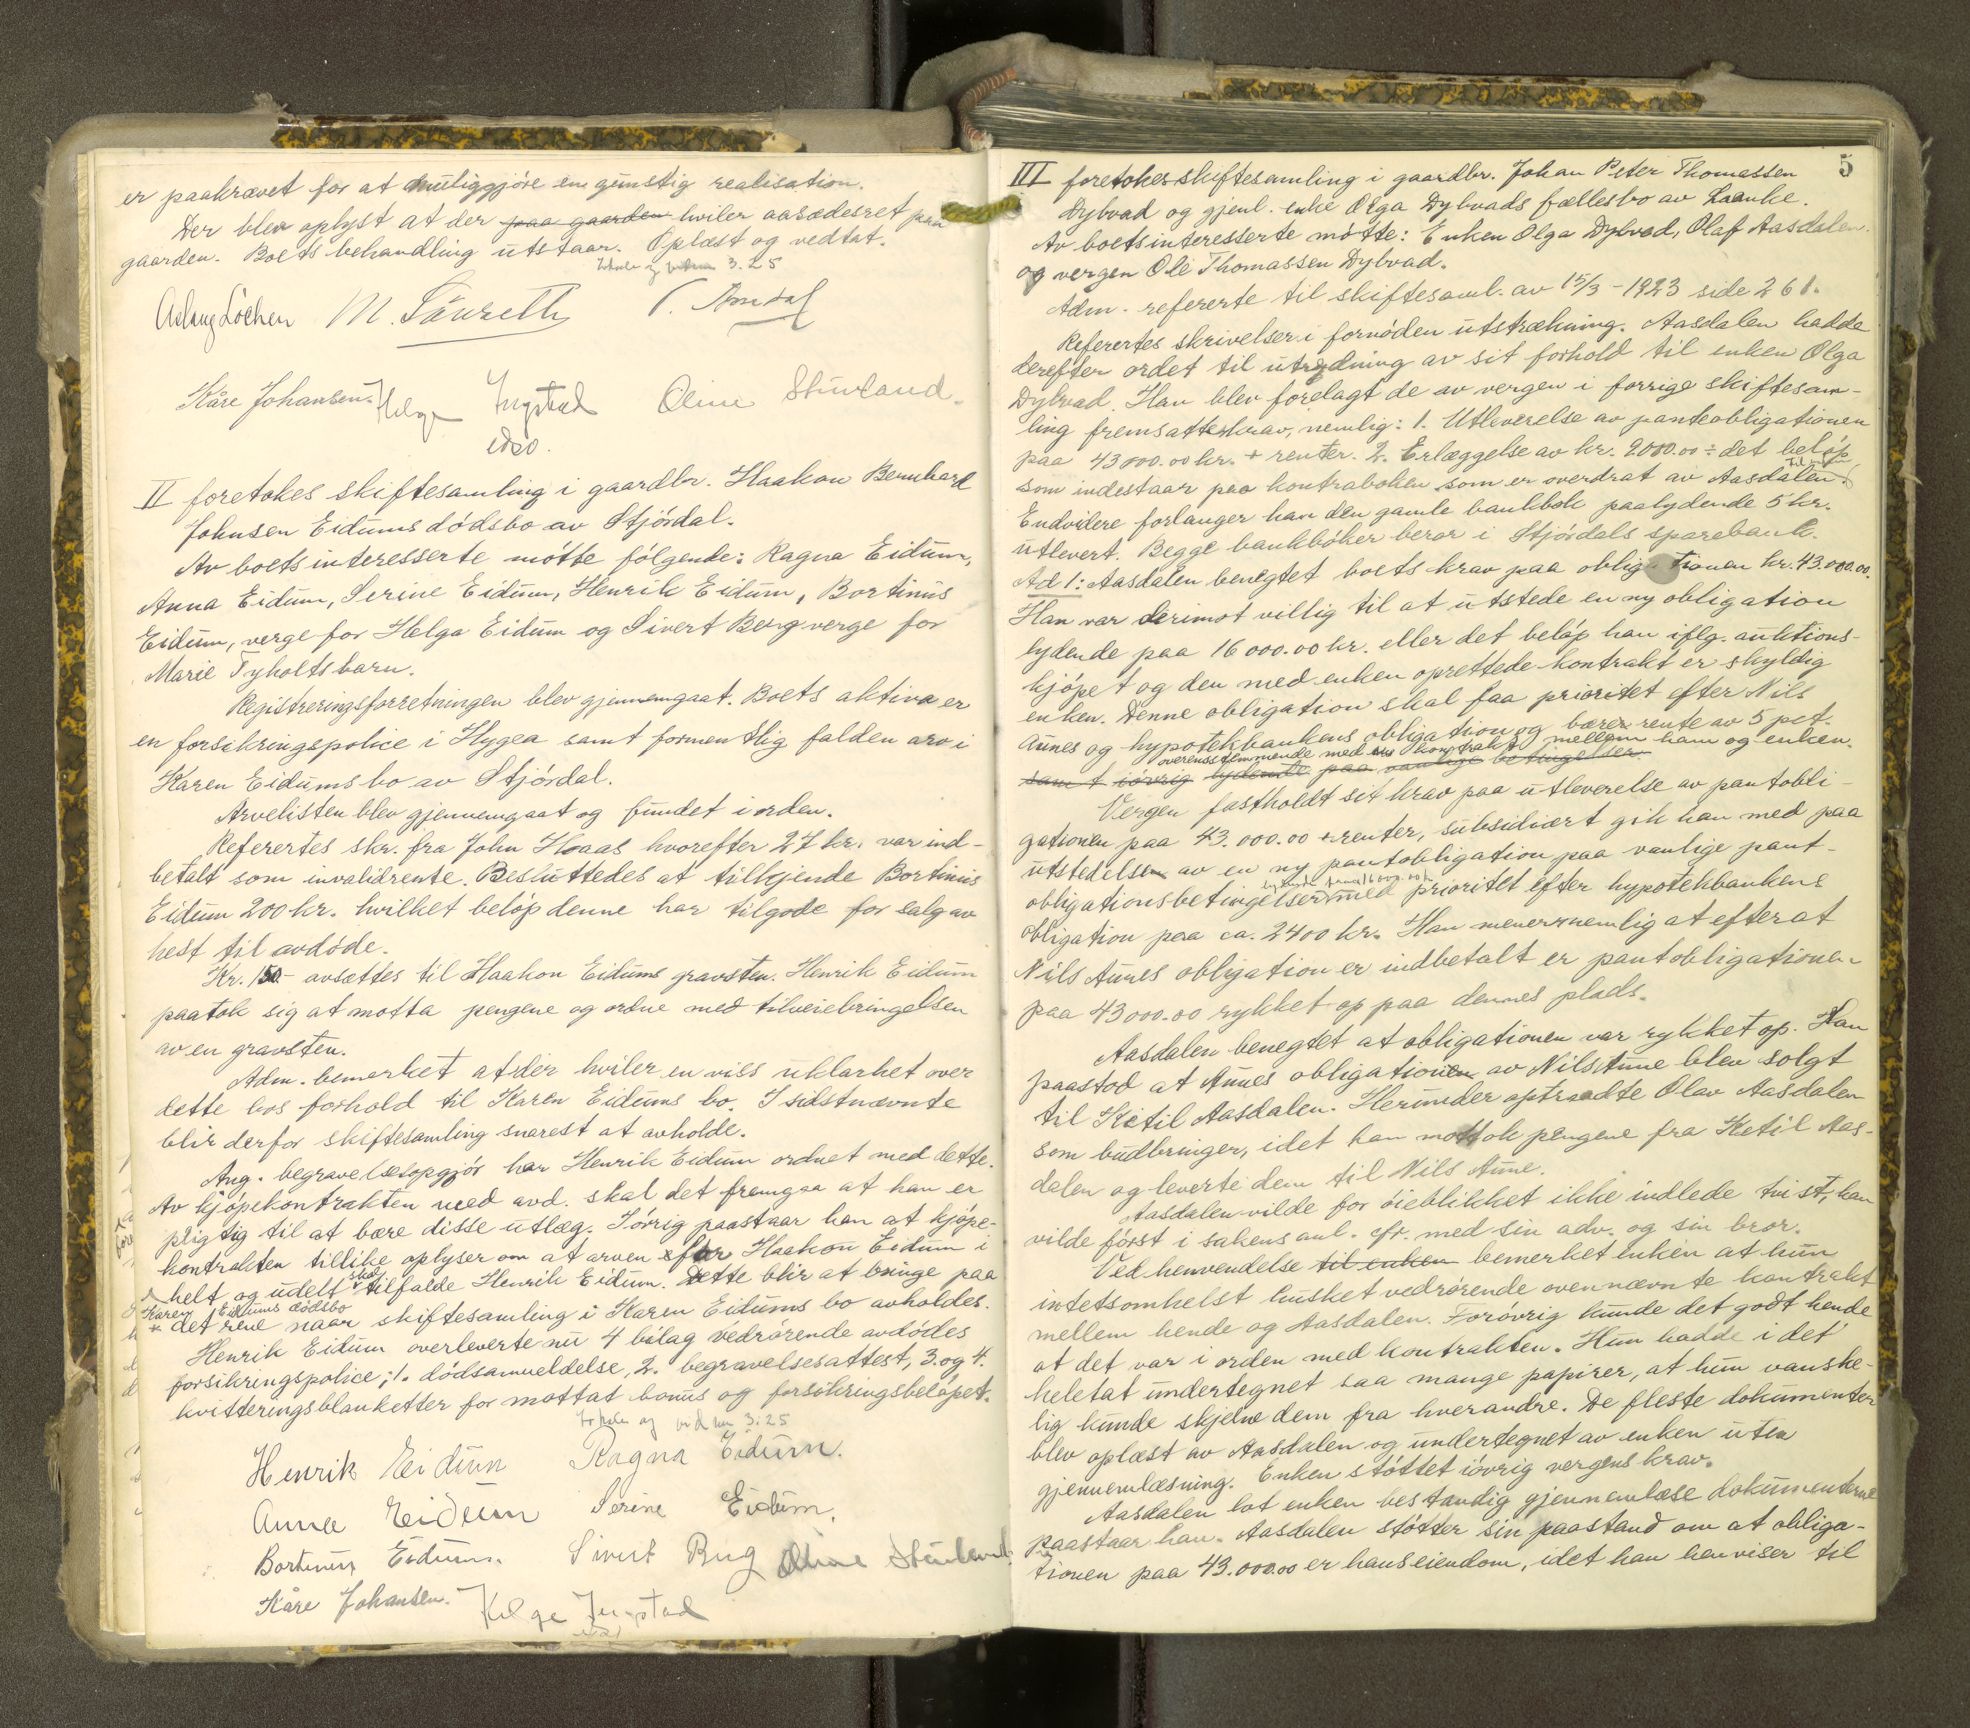 er paakrævet for at muliggjöre en gunstig realisation.
Der blev oplyst at der paa gaarden hviler aasædesret paa
gaarden. Boets behandling utstaar. Oplæst og vedtat.
3.25
Aslaug Löchen M. Saurette
Kåre Johansen. Helge Ingstad Oline Sturland.
edso.
II foretokes skiftesamling i gaardbr. Haakon Bernhard
Johnsen Eidums dödsbo av Stjördal.
Av boets interesserte mötte fölgende: Ragna Eidum,
Anna Eidum, Serine Eidum, Henrik Eidum, Bortinus
Eidum, verge for Helga Eidum og Sivert Berg verge for
Marie Tyholts barn.
Registreringsforretningen blev gjennemgaat. Boets aktiva er
en forsikringspolice i Hygea samt formentlig falden arv i
Karen Eidums bo av Stjördal.
Arvelisten blev gjennemgaat og fundet i orden.
Refertes skr. fra John Haas hvorefter 27 kr. var ind-
betalt som invalidrente. Besluttedes at tilkjende Bortinus
Eidum 200 kr. hvilket belöp denne har tilgode for salg av
hest til avdöde.
Kr. 150- avsættes til Haakon Eidums gravsten. Henrik Eidum
paatok sig at motta pengene og ordne med tilveiebringelsen
av en gravsten.
Adm. bemerket at der hviler en viss uklarhet over
dette bos forhold til Karen Eidums bo. I sidstnævnte
blir derfor skiftesamling snarest at avholde.
Ang. begravelsesopgjör har Henrik Eidum ordnet med dette.
Av kjöpekontrakten med avd. skal det fremgaa at han er
pligtig til at bære disse utlæg. Iövrig paastaar han at kjöpe-
kontrakten tillike oplyser om at arven efter Haakon Eidum i
Karen Eidums dödsbo
helt og udelt skal tilfalde Henrik Eidum. Dette blir at bringe paa
det rene naar skiftesamling i Karen Eidums bo avholdes.
Henrik Eidum overleverte nu 4 bilag vedrörende avdödes
forsikringspolice; 1. dödsanmeldelse, 2. begravelsesattest, 3. og 4.
kvitteringsblanketter for mottat bonus og forsikringsbelöpet.
3.25
Henrik Eidum Ragna Eidum.
Anna Eidum Serine Eidum.
Bortinus Eidum. Sivert Berg Oline Sturland.
Kåre Johansen. Helge Ingstad
5
III foretokes skiftesamling i gaardbr. Johan Peter Thomassen
Dybvad og gjenl. enke Olga Dybvads fællesbo av Laanke.
Av boets interesserte mötte: Enken Olga Dybvad, Olaf Aasdalen
og vergen Ole Thomassen Dybvad.
Adm. refererte til skiftesaml. av 15/3 - 1923 side 261.
Refertes skrivelser i fornöden utstrækning. Aasdalen hadde
derefter ordet til utredning av sit forhold til enken Olga
Dybvad. Han blev forelagt de av vergen i forrige skiftesam-
ling fremsatte krav, nemlig: 1. Utleverelse av panteobligationen
paa 43000.00 kr. + renter. 2. Erlæggelse av kr. 2000.00 ÷ det belöp
som indestaar paa kontraboken som er overdrat av Aasdalen.
Endvidere forlanger han den gamle bankbok paalydende 5 kr.
utlevert. Begge bankböker beror i Stjördals sparebank.
Ad 1: Aasdalen benegtet boets krav paa obligationen kr. 43.000.00.
Han var derimot villig til at utstede en ny obligation
lydende paa 16000.00 kr. eller det belöp han iflg. auktions-
kjöpet og den med enken oprettede kontrakt er skyldig
enken. Denne obligation skal faa prioritet efter Nils
Aunes og hypotekbankens obligation og bærer rente av 5 pct.
overensstemmende med kontrakt mellem ham og enken.
samt iövrig lydende paa vanlige betingelser.
Vergen fastholdt sit krav paa utleverelse av pantobli-
gationen paa 43.000.00 + renter, subsidiært gik han med paa
utstedelsen av en ny pantobligation paa vanlige pant-
obligationsbetingelser lydende paa 16000.00 kr. med prioritet efter hypotekbankens
obligation paa ca. 2400 kr. Han mener nemlig at efterat
Nils Aunes obligation er indbetalt er pantobligationen
paa 43000.00 rykket op paa dennes plads.
Aasdalen benegtet at obligationen var rykket op. Han
paastod at Aunes obligationen av Nils Aune blev solgt
til Ketil Aasdalen. Herunder optraadte Olav Aasdalen
som budbringer, idet han mottok pengene fra Ketil Aas-
dalen og leverte dem til Nils Aune.
Aasdalen vilde for öieblikket ikke indlede tvist, han
vilde först i sakens anl. cfr. med sin adv. og sin bror.
Ved henvendelse til enken bemerket enken at hun
intetsomhelst husket vedrörende ovennævnte kontrakt
mellem hende og Aasdalen. Forövrig kunde det godt hende
at det var i orden med kontrakten. Hun hadde i det
heletat undertegnet saa mange papirer, at hun vanske-
lig kunde skjelne dem fra hverandre. De fleste dokumenter
blev oplæst av Aasdalen og undertegnet av enken uten
gjennemlæsning. Enken stöttet iövrig vergens krav.
Aasdalen lot enken bestandig gjennemlæse dokumenterne
paastaar han. Aasdalen stötter sin paastand om at obliga-
tionen paa 43.000.00 er hans eiendom, idet han henviser til